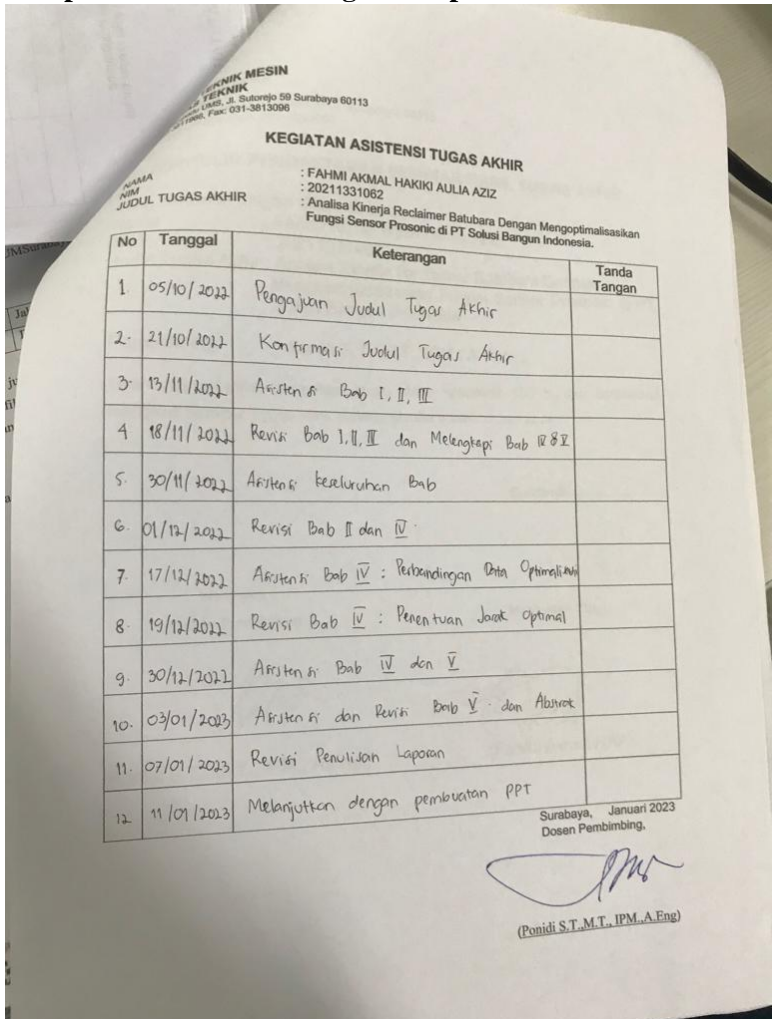 TEKNIK MESIN
TEKNIK
UMS, Jl. Sutorejo 59 Surabaya 60113
Fax: 031-3813096
KEGIATAN ASISTENSI TUGAS AKHIR
NAMA : FAHMI AKMAL HAKIKI AULIA AZIZ
NIM : 20211331062
JUDUL TUGAS AKHIR : Analisa Kinerja Reclaimer Batubara Dengan Mengoptimalisasikan
Fungsi Sensor Prosonic di PT Solusi Bangun Indonesia.
No Tanggal Keterangan Tanda Tangan
1. 05/10/2022 Pengajuan Judul Tugas Akhir
2. 21/10/2022 Konfirmasi Judul Tugas Akhir
3. 13/11/2022 Asistensi Bab I, II, III
4 18/11/2022 Revisi Bab I, II, III dan Melengkapi Bab IV & V
5. 30/11/2022 Asistensi keseluruhan Bab
6. 01/12/2022 Revisi Bab II dan IV
7. 17/12/2022 Asistensi Bab IV : Perbandingan Data Optimalisasi
8. 19/12/2022 Revisi Bab IV : Penentuan Jarak Optimal
9. 30/12/2022 Asistensi Bab IV dan V
10. 03/01/2023 Asistensi dan Revisi Bab V dan Abstrak
11. 07/01/2023 Revisi Penulisan Laporan
12 11/01/2023 Melanjutkan dengan pembuatan PPT
Surabaya, Januari 2023
Dosen Pembimbing,
(Ponidi S.T.,M.T., IPM.,A.Eng)